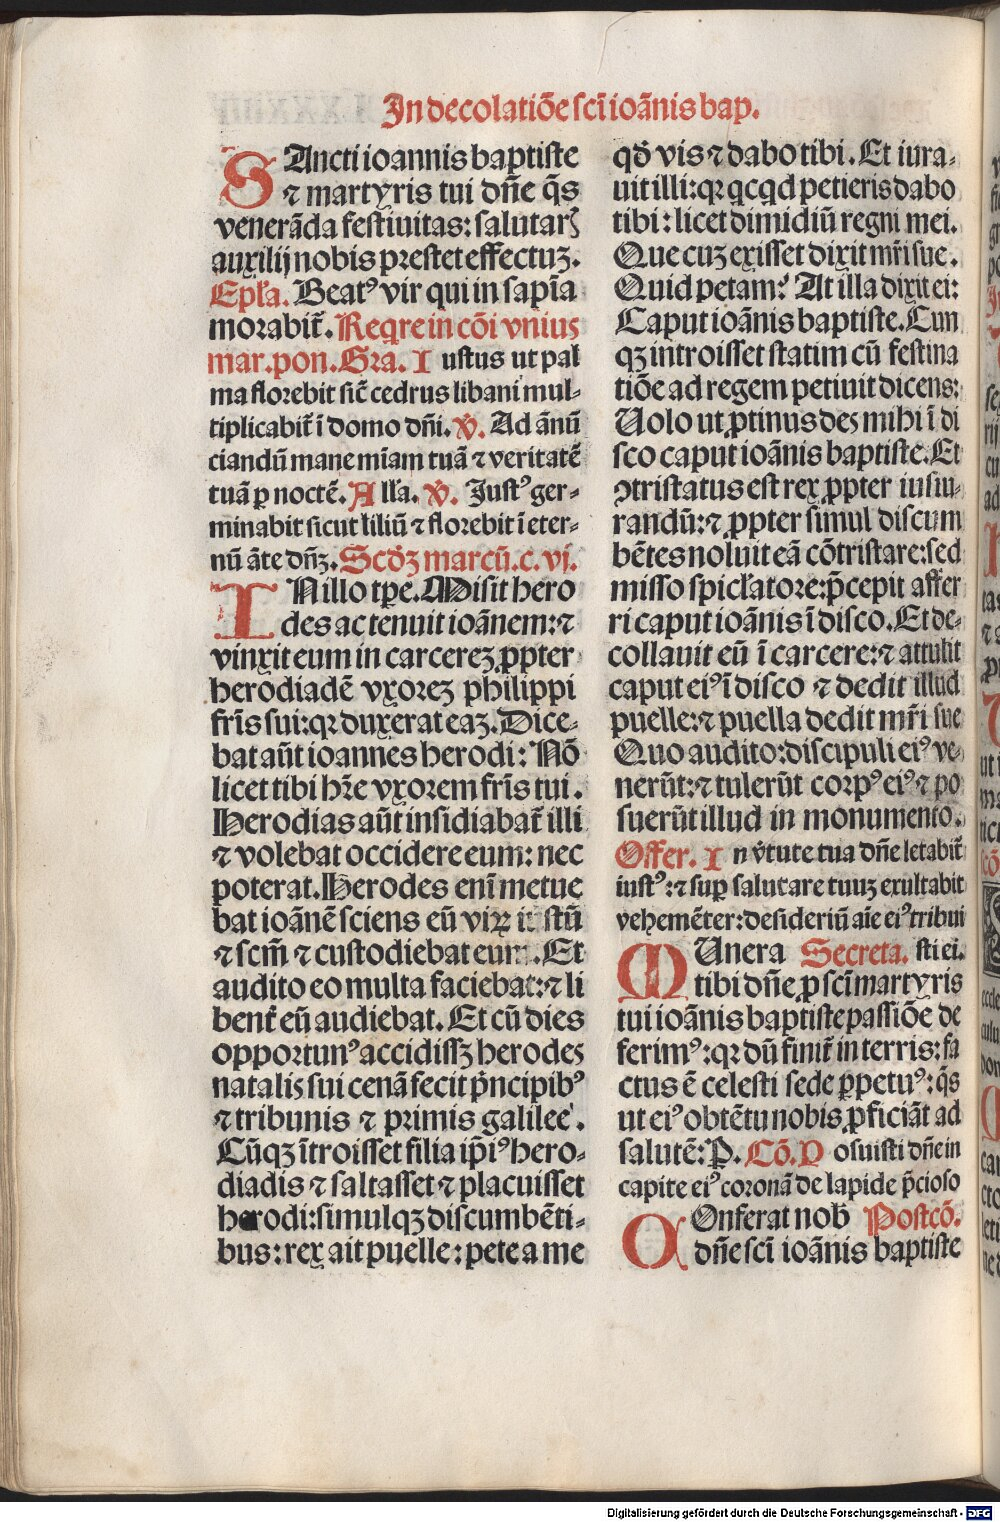 In decolatiōe scī ioānis bap.
SAncti ioannis baptiste
⁊ martyris tui dn̄e q̄s
venerāda festiuitas: salutarꝭ
auxilij nobis prestet effectuꝫ.
Epl̄a. Beatꝰ vir qui in sapīa
morabit̄. Reqͥre in cōi vniuꝭ
mar. pon. Gra. I ustus ut pal
ma florebit sic̄ cedrus libani mul-
tiplicabit̄ ī domo dn̄i. v̄. Ad ānū
ciandū mane mīam tuā ⁊ veritatē
tuā ꝑ noctē. A ll̄a. v̄. Justꝰ ger-
minabit sicut liliū ⁊ florebit ī eter-
nū āte dn̄ꝫ. Scd̄ꝫ marcū. c. vi.
IN illo tp̄e. Misit hero
des ac tenuit ioānem: ⁊
vinxit eum in carcereꝫ ꝓpter
herodiadē vxoreꝫ philippi
fr̄is sui: qꝛ duxerat eaꝫ. Dice-
bat aūt ioannes herodi: Nō
licet tibi hr̄e vxorem fr̄is tui.
Herodias aūt insidiabat̄ illi
⁊ volebat occidere eum: nec
poterat. Herodes enī metue
bat ioānē sciens eū viꝝ iustū
⁊ scm̄ ⁊ custodiebat eum. Et
audito eo multa faciebat: ⁊ li
bent̄ eū audiebat. Et cū dies
opportunꝰ accidissꝫ herodes
natalis sui cenā fecit pͥncipibꝰ
⁊ tribunis ⁊ primis galilee.
Cūqꝫ ītroisset filia ip̄iꝰ hero-
diadis ⁊ saltasset ⁊ placuisset
herodi: simulqꝫ discumbēti-
bus: rex ait puelle: pete a me
qd̄ vis ⁊ dabo tibi. Et iura-
uit illi: qꝛ qͥcqͥd petieris dabo
tibi: licet dimidiū regni mei.
Que cuꝫ exisset dixit mr̄i sue.
Quid petam? At illa dixit ei:
Caput ioānis baptiste. Cun
qꝫ introisset statim cū festina
tiōe ad regem petiuit dicens:
Uolo ut ꝓtinus des mihi ī di
sco caput ioānis baptiste. Et
ↄtristatus est rex ꝓpter iusiu-
randū: ⁊ ꝓpter simul discum
bētes noluit eā cōtristare: sed
misso spicl̄atore: p̄cepit affer
ri caput ioānis ī disco. Et de-
collauit eū ī carcere: ⁊ attulit
caput eiꝰ ī disco ⁊ dedit illud
puelle: ⁊ puella dedit mr̄i sue
Quo audito: discipuli eiꝰ ve-
nerūt: ⁊ tulerūt corpꝰ eiꝰ ⁊ po
suerūt illud in monumento.
Offer. I n v̄tute tua dn̄e letabit̄
iustꝰ: ⁊ suꝑ salutare tuuꝫ exultabit
vehemēter: desideriū aīe eiꝰ tribui
MUnera Secreta. sti ei.
tibi dn̄e ꝓ scī martyris
tui ioānis baptiste passiōe de
ferimꝰ: qꝛ dū finit̄ in terris: fa
ctus ē celesti sede ꝑpetuꝰ: q̄s
ut eiꝰ obtētu nobis ꝓficiāt ad
salutē: P. Cō. P osuisti dn̄e in
capite eiꝰ coronā de lapide p̄cioso
COnferat nob̄ Postcō.
dn̄e scī ioānis baptiste
Digitalisierung gefördert durch die Deutsche Forschungsgemeinschaft - DFG